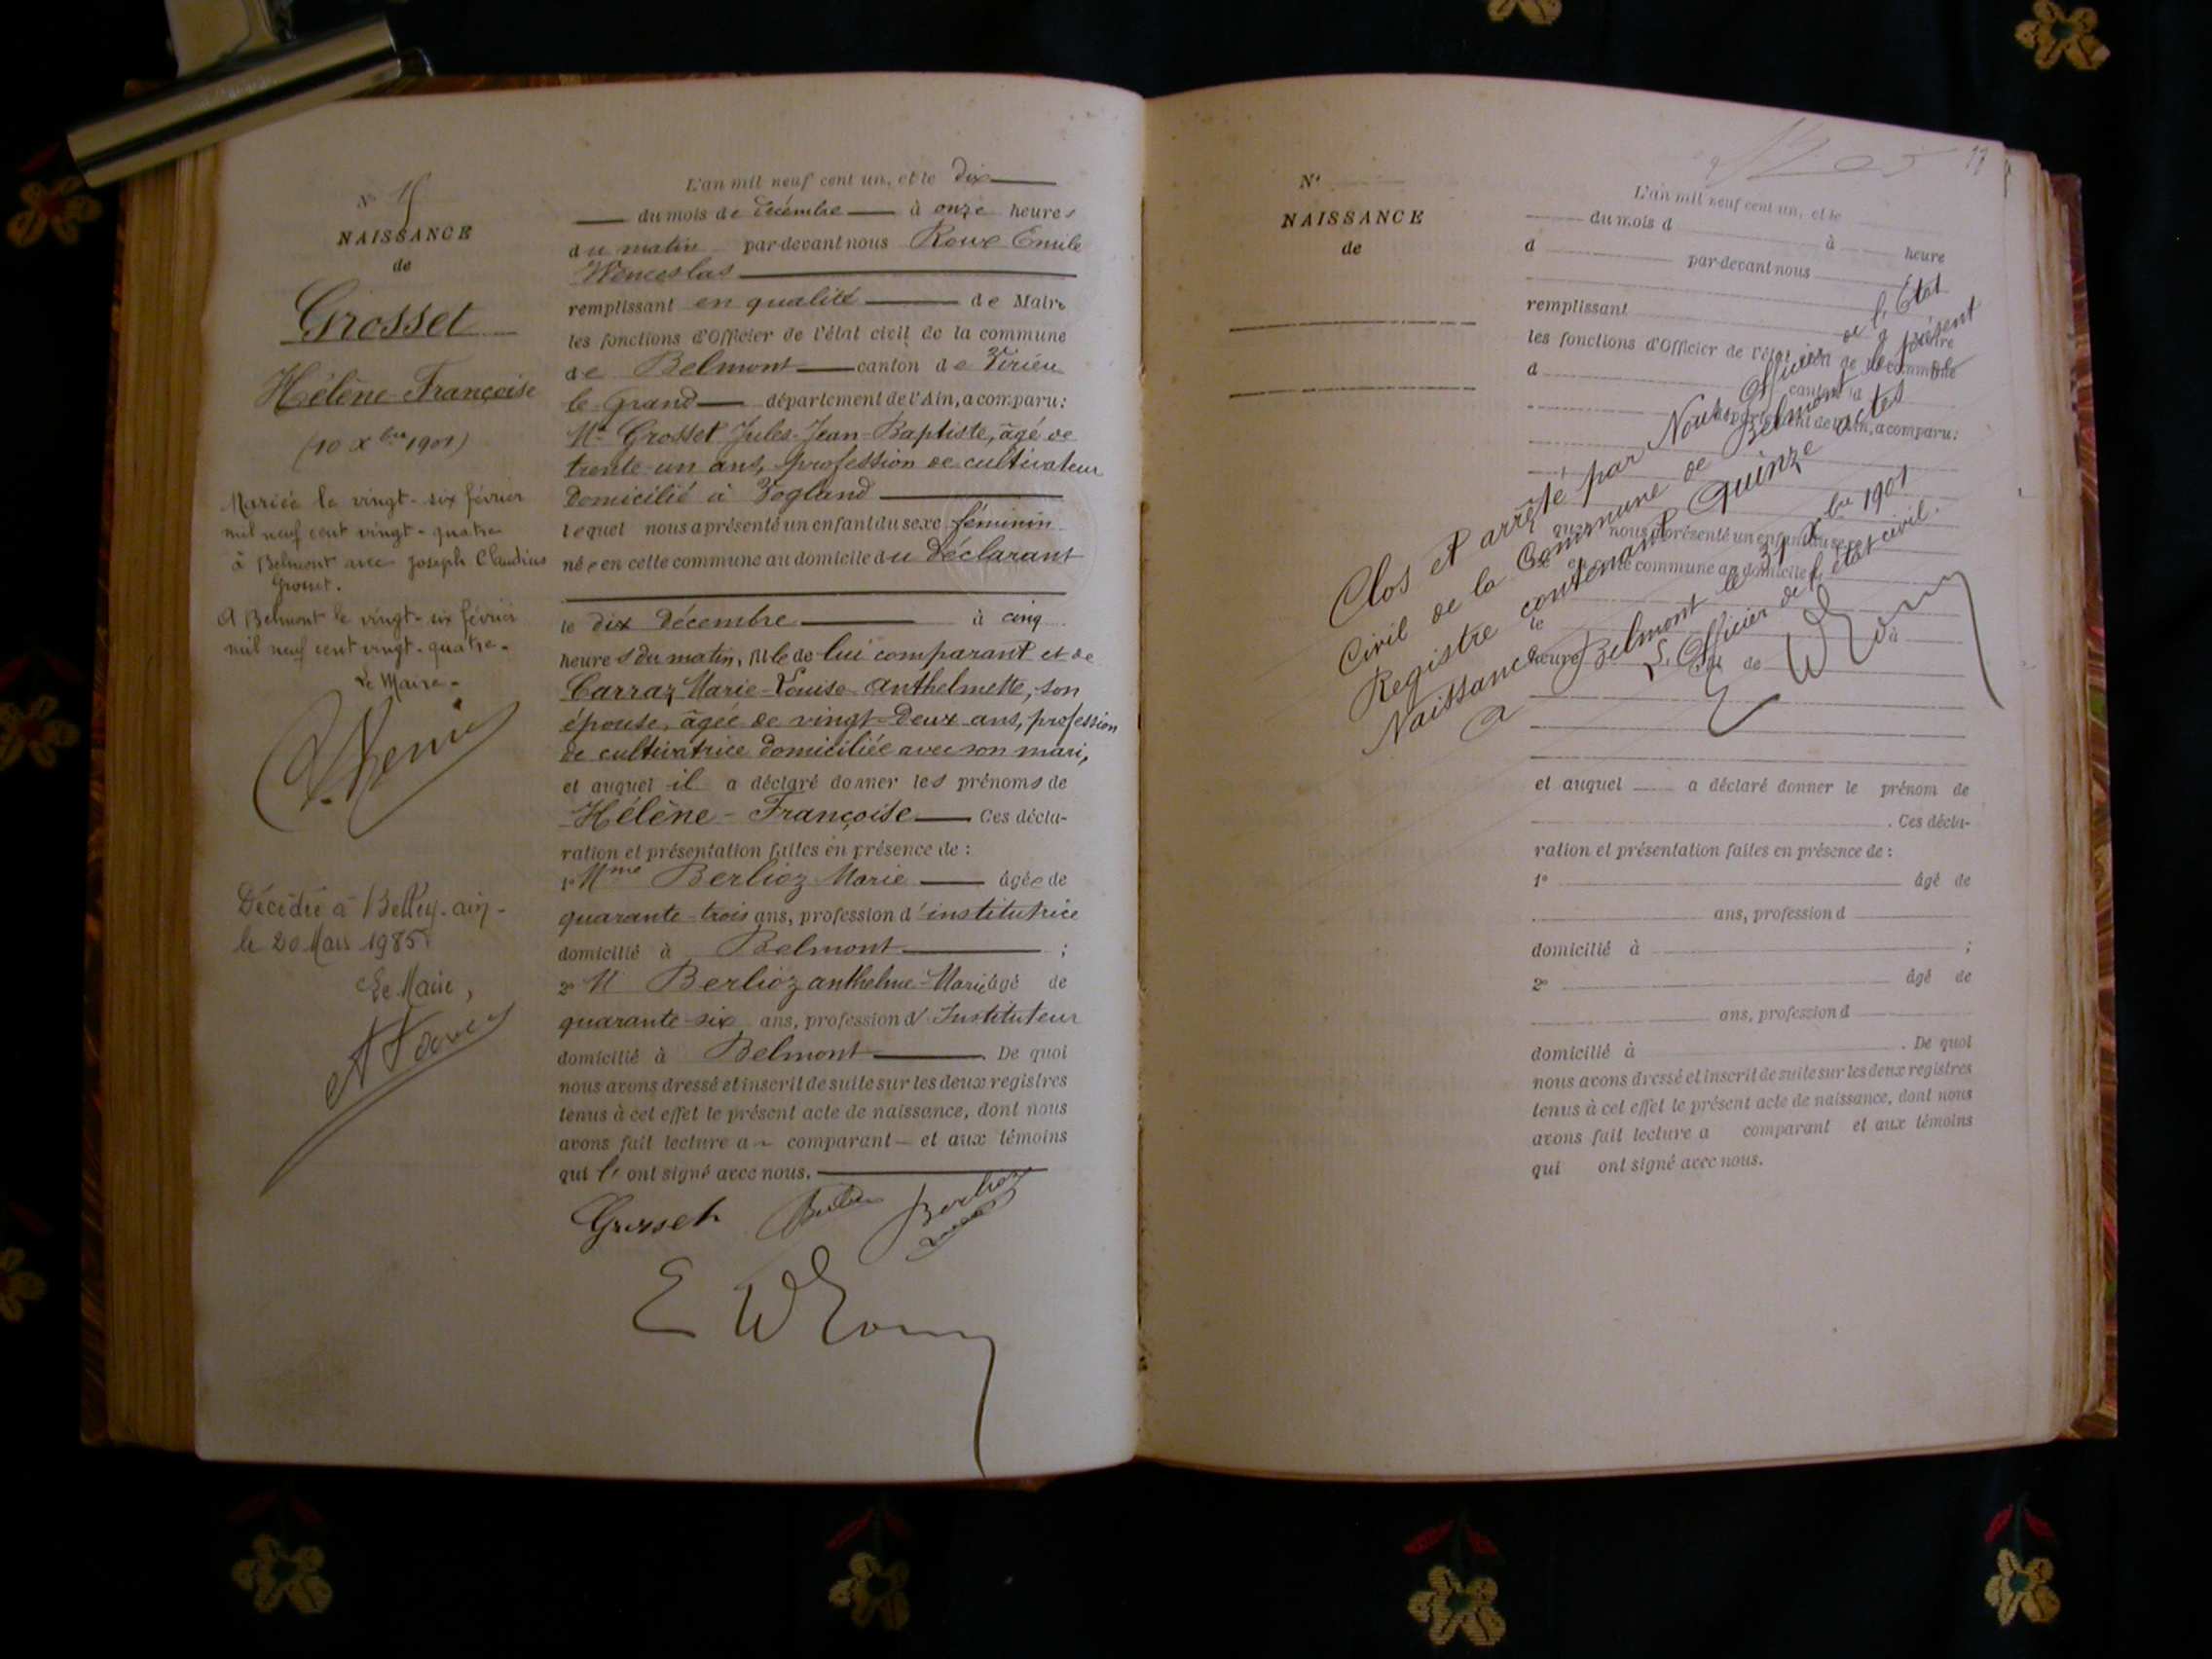 N° 15
NAISSANCE
de
Grosset
Hélène-Françoise
(10 Xbre 1901)
Mariée le vingt-six février
mil neuf cent vingt-quatre
à Belmont avec Joseph Claudius
Grosset.
A Belmont le vingt-six février
mil neuf cent vingt-quatre-
Le Maire-
Décédée à Belley-ain-
le 20 Mars 1985
Le Maire,
L'an mil neuf cent un, et le dix
du mois de Décembre à onze heures
du matin par-devant nous Roux Emile
Wenceslas
remplissant en qualité de Maire
les fonctions d'Officier de l'état civil de la commune
de Belmont canton de Virieu
le-Grand département de l'Ain, a comparu:
Mr Grosset Jules-Jean-Baptiste, âgé de
trente-un ans, profession de cultivateur
domicilié à Vogland
lequel nous a présenté un enfant du sexe féminin
née en cette commune au domicile du Déclarant
le dix Décembre à cinq
heures du matin, fille de lui comparant et de
Carraz Marie-Louise-Anthelmette, son
épouse, âgée de vingt-deux ans, profession
de cultivatrice domiciliée avec son mari,
et auquel il a déclaré donner les prénoms de
Hélène-Françoise Ces décla-
ration et présentation faites en présence de :
1° Mme Berlioz Marie âgée de
quarante-trois ans, profession d'institutrice
domicilié à Belmont ;
2° M Berlioz anthelme-Marie âgé de
quarante-six ans, profession d'Instituteur
domicilié à Belmont De quoi
nous avons dressé et inscrit de suite sur les deux registres
tenus à cet effet le présent acte de naissance, dont nous
avons fait lecture a comparant et aux témoins
qui l' ont signé avec nous.
Grosset Berlioz
N°
NAISSANCE
de
L'an mil neuf cent un, et le
du mois d à heure
d par-devant nous
remplissant
les fonctions d'Officier de l'état civil de la commune
d canton d
département de l'Ain, a comparu:
quel nous a présenté un enfant du sexe
né en cette commune au domicile d
le à
heure de
et auquel a déclaré donner le prénom de
. Ces décla-
ration et présentation faites en présence de :
1° âgé de
ans, profession d
domicilié à ;
2° âgé de
ans, profession d
domicilié à . De quoi
nous avons dressé et inscrit de suite sur les deux registres
tenus à cet effet le présent acte de naissance, dont nous
avons fait lecture a comparant et aux témoins
qui ont signé avec nous.
Clos et arrêté par Nous Officier de l'État
Civil de la Commune de Belmont le présent
Registre contenant Quinze actes de
Naissance
A Belmont le 31 Xbre 1901
L'Officier de l'état civil.